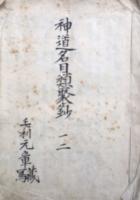 神道名目類聚鈔 一二
毛利元章蔵